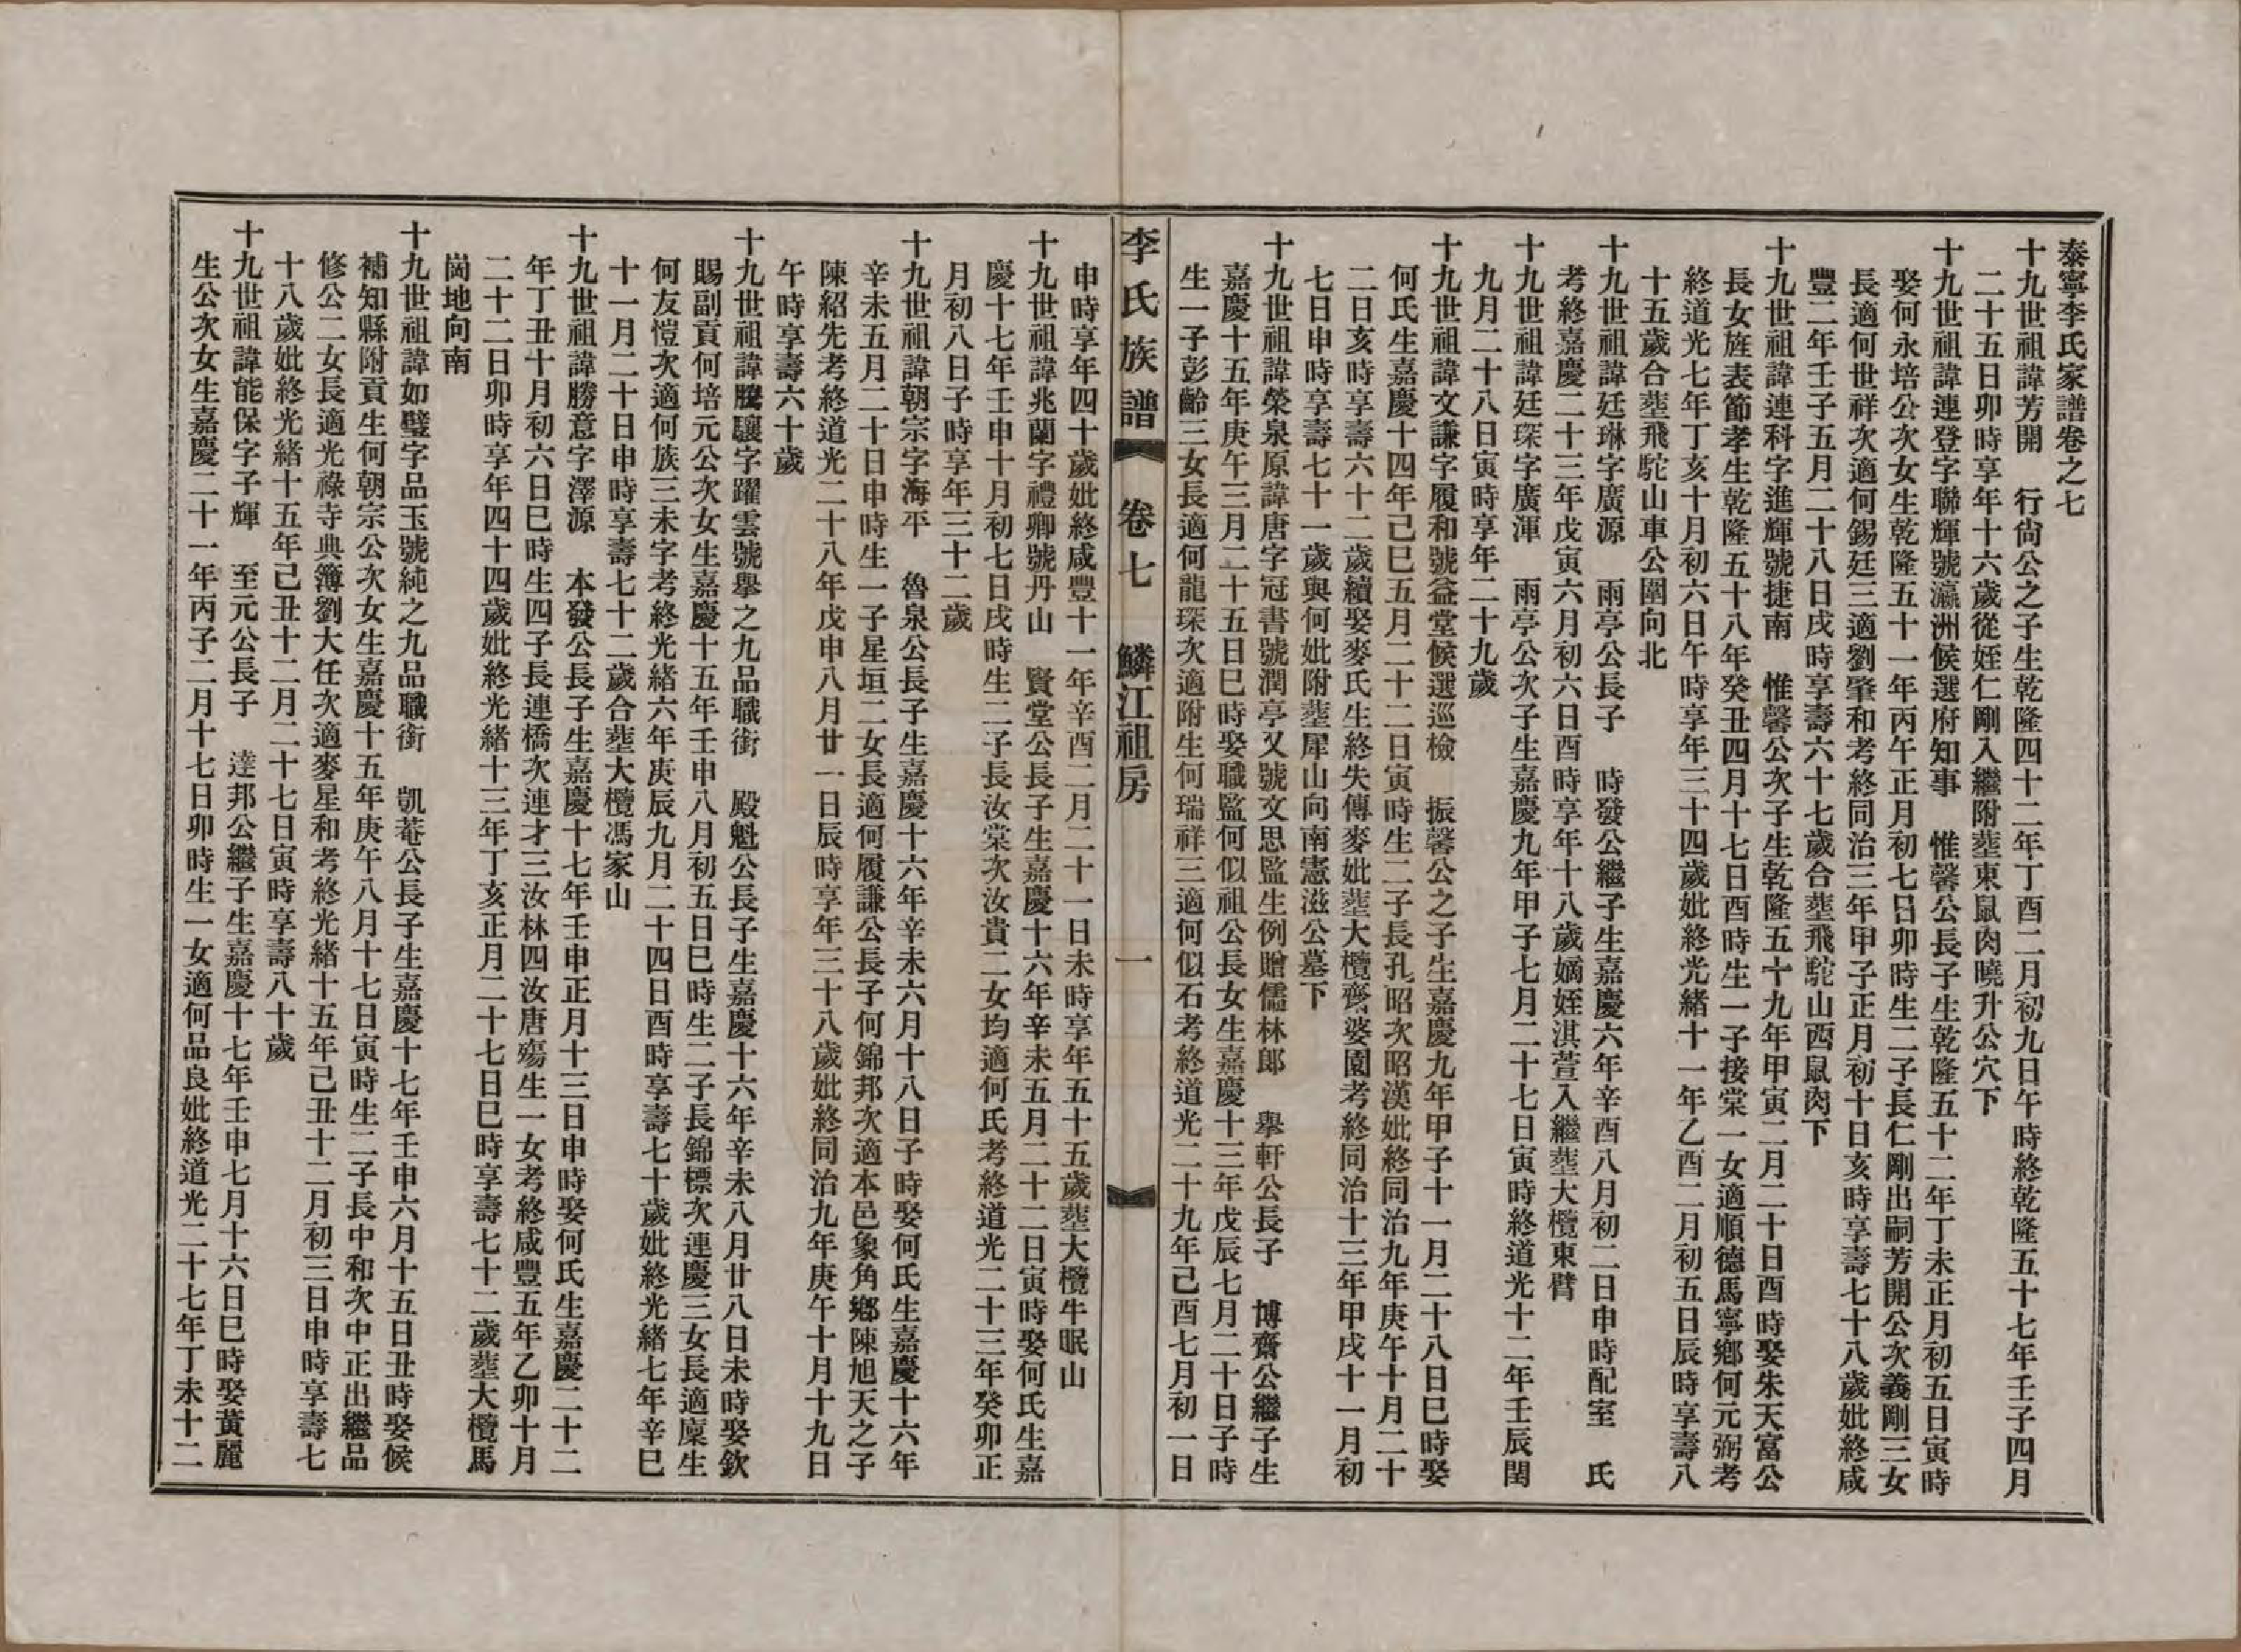 泰寧李氏家譜卷之七
十九世祖諱芳開　行尙公之子生乾隆四十二年丁酉二月初九日午時終乾隆五十七年壬子四月
二十五日卯時享年十六歲從姪仁剛入繼附塟東鼠肉曉升公穴下
十九世祖諱連登字聯輝號瀛洲候選府知事　惟馨公長子生乾隆五十二年丁未正月初五日寅時
娶何永培公次女生乾隆五十一年丙午正月初七日卯時生二子長仁剛出嗣芳開公次義剛三女
長適何世祥次適何錫廷三適劉肇和考終同治三年甲子正月初十日亥時享壽七十八歲妣終咸
豐二年壬子五月二十八日戌時享壽六十七歲合塟飛駝山西鼠肉下
十九世祖諱連科字進輝號捷南　惟馨公次子生乾隆五十九年甲寅二月二十日酉時娶朱天富公
長女旌表節孝生乾隆五十八年癸丑四月十七日酉時生一子接棠一女適順德馬寧鄉何元弼考
終道光七年丁亥十月初六日午時享年三十四歲妣終光緒十一年乙酉二月初五日辰時享壽八
十五歲合塟飛駝山車公圍向北
十九世祖諱廷琳字廣源　雨亭公長子　時發公繼子生嘉慶六年辛酉八月初二日申時配室　氏
考終嘉慶二十三年戊寅六月初六日酉時享年十八歲嫡姪淇萱入繼塟大欖東臂
十九世祖諱廷琛字廣渾　雨亭公次子生嘉慶九年甲子七月二十七日寅時終道光十二年壬辰閏
九月二十八日寅時享年二十九歲
十九世祖諱文謙字履和號益堂候選巡檢　振馨公之子生嘉慶九年甲子十一月二十八日巳時娶
何氏生嘉慶十四年己巳五月二十二日寅時生二子長孔昭次昭漢妣終同治九年庚午十月二十
二日亥時享壽六十二歲續娶麥氏生終失傳麥妣塟大欖齊婆園考終同治十三年甲戌十一月初
七日申時享壽七十一歲與何妣附塟犀山向南憲滋公墓下
十九世祖諱榮泉原諱唐字冠書號潤亭又號文思監生例贈儒林郎　舉軒公長子　博齋公繼子生
嘉慶十五年庚午三月二十五日巳時娶職監何似祖公長女生嘉慶十三年戊辰七月二十日子時
生一子彭齡三女長適何龍琛次適附生何瑞祥三適何似石考終道光二十九年己酉七月初一日
李氏族譜　卷七　鱗江祖房　一
申時享年四十歲妣終咸豐十一年辛酉二月二十一日未時享年五十五歲塟大欖牛眠山
十九世祖諱兆蘭字禮卿號丹山　賢堂公長子生嘉慶十六年辛未五月二十二日寅時娶何氏生嘉
慶十七年壬申十月初七日戌時生二子長汝棠次汝貴二女均適何氏考終道光二十三年癸卯正
月初八日子時享年三十二歲
十九世祖諱朝宗字海平　魯泉公長子生嘉慶十六年辛未六月十八日子時娶何氏生嘉慶十六年
辛未五月二十日申時生一子星垣二女長適何履謙公長子何錦邦次適本邑象角鄉陳旭天之子
陳紹先考終道光二十八年戊申八月廿一日辰時享年三十八歲妣終同治九年庚午十月十九日
午時享壽六十歲
十九世祖諱騰驤字躍雲號舉之九品職銜　殿魁公長子生嘉慶十六年辛未八月廿八日未時娶欽
賜副貢何培元公次女生嘉慶十五年壬申八月初五日巳時生二子長錦標次連慶三女長適廩生
何友愷次適何族三未字考終光緒六年庚辰九月二十四日酉時享壽七十歲妣終光緒七年辛巳
十一月二十日申時享壽七十二歲合塟大欖馮家山
十九世祖諱勝意字澤源　本發公長子生嘉慶十七年壬申正月十三日申時娶何氏生嘉慶二十二
年丁丑十月初六日巳時生四子長連橋次連才三汝林四汝唐殤生一女考終咸豐五年乙卯十月
二十二日卯時享年四十四歲妣終光緒十三年丁亥正月二十七日巳時享壽七十二歲塟大欖馬
崗地向南
十九世祖諱如璧字品玉號純之九品職銜　凱菴公長子生嘉慶十七年壬申六月十五日丑時娶候
補知縣附貢生何朝宗公次女生嘉慶十五年庚午八月十七日寅時生二子長中和次中正出繼品
修公二女長適光祿寺典簿劉大任次適麥星和考終光緒十五年己丑十二月初三日申時享壽七
十八歲妣終光緒十五年己丑十二月二十七日寅時享壽八十歲
十九世祖諱能保字子輝　至元公長子　達邦公繼子生嘉慶十七年壬申七月十六日巳時娶黃麗
生公次女生嘉慶二十一年丙子二月十七日卯時生一女適何品良妣終道光二十七年丁未十二